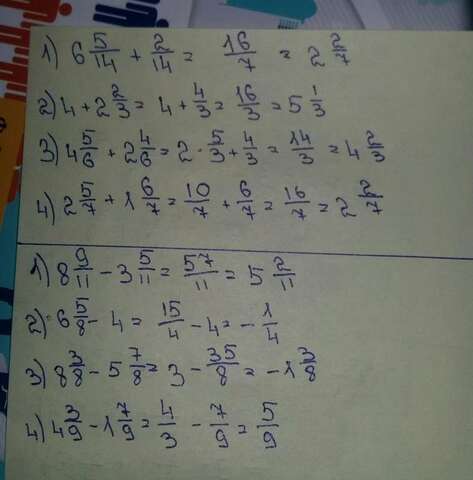 1) 6 5/14 + 2/14 = 16/7 = 2 2/7
2) 4 + 2 2/3 = 4 + 4/3 = 16/3 = 5 1/3
3) 4 5/6 + 2 4/6 = 2 · 5/3 + 4/3 = 14/3 = 4 2/3
4) 2 5/7 + 1 6/7 = 10/7 + 6/7 = 16/7 = 2 2/7
1) 8 9/11 - 3 5/11 = 57/11 = 5 2/11
2) 6 5/8 - 4 = 15/4 - 4 = - 1/4
3) 8 3/8 - 5 7/8 = 3 - 35/8 = - 1 3/8
4) 4 3/9 - 1 7/9 = 4/3 - 7/9 = 5/9